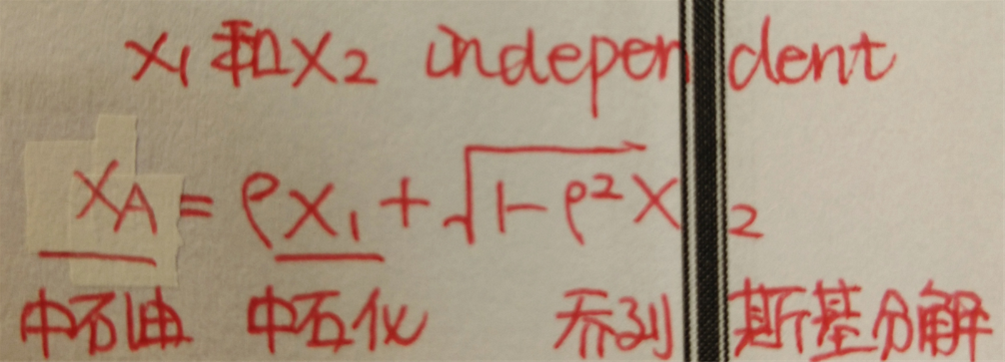 x₁和x₂ independent
x_A = ρx₁ + √(1-ρ²)x₂
中石油 中石化 乔列斯基分解